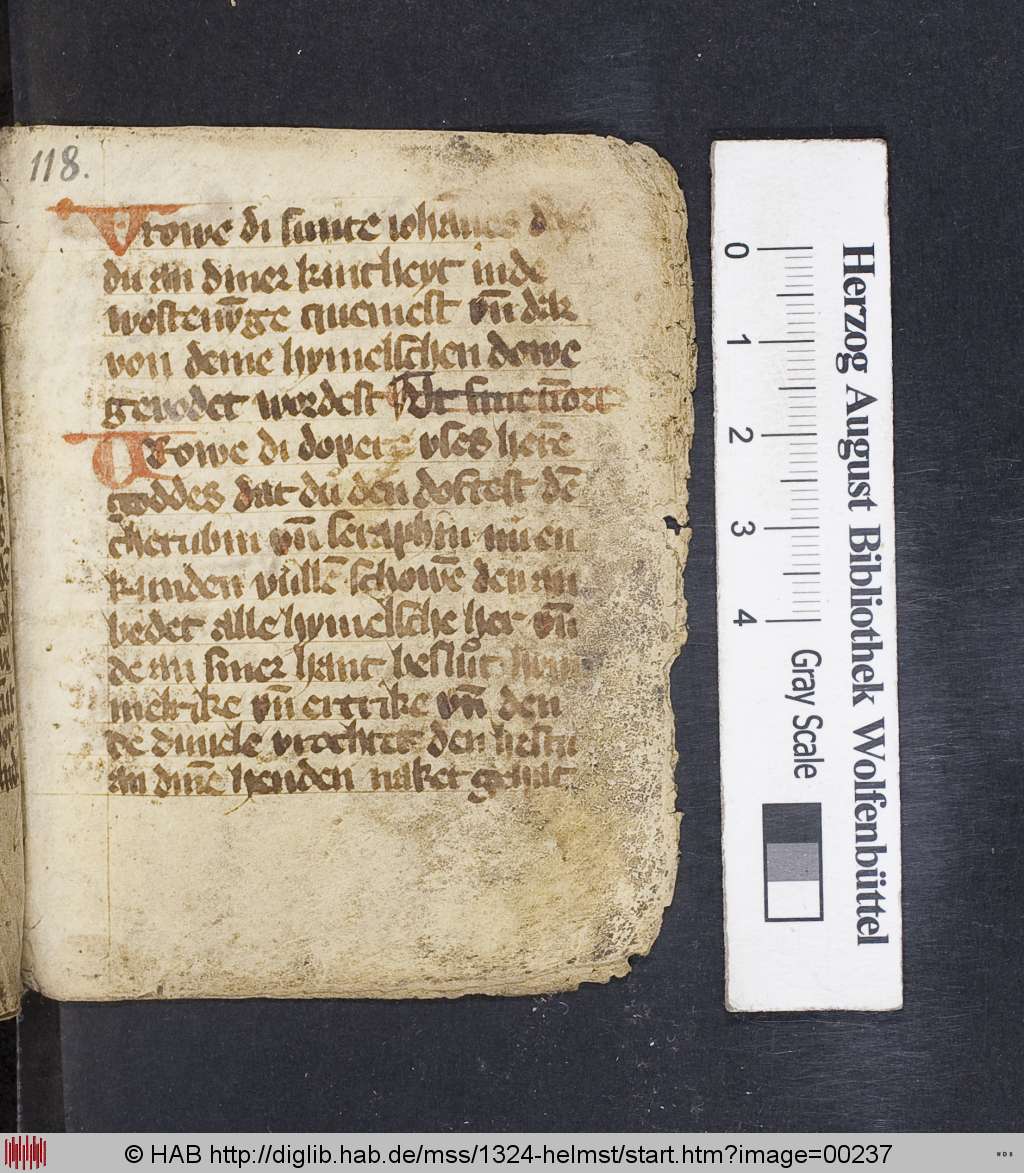 118.
Vrowe di sunte iohānes dat
du an diner kintheyt inde
wostenŷge quemest vn̄ dik
von deme hymelschen dowe
gevodet wordest
Vrowe di dopere vses herē
goddes dat du den doftest dē
cherubin vn̄ seraphin nu en
kunden vullē schowē den an
bedet alle hymelsche her vn̄
de an siner hant beslut hym
melrike vn̄ ertrike vn̄ den
de duuele vrochtet den hestu
an dinē henden naket gehat
0 1 2 3 4
Gray Scale
Herzog August Bibliothek Wolfenbüttel
© HAB http://diglib.hab.de/mss/1324-helmst/start.htm?image=00237